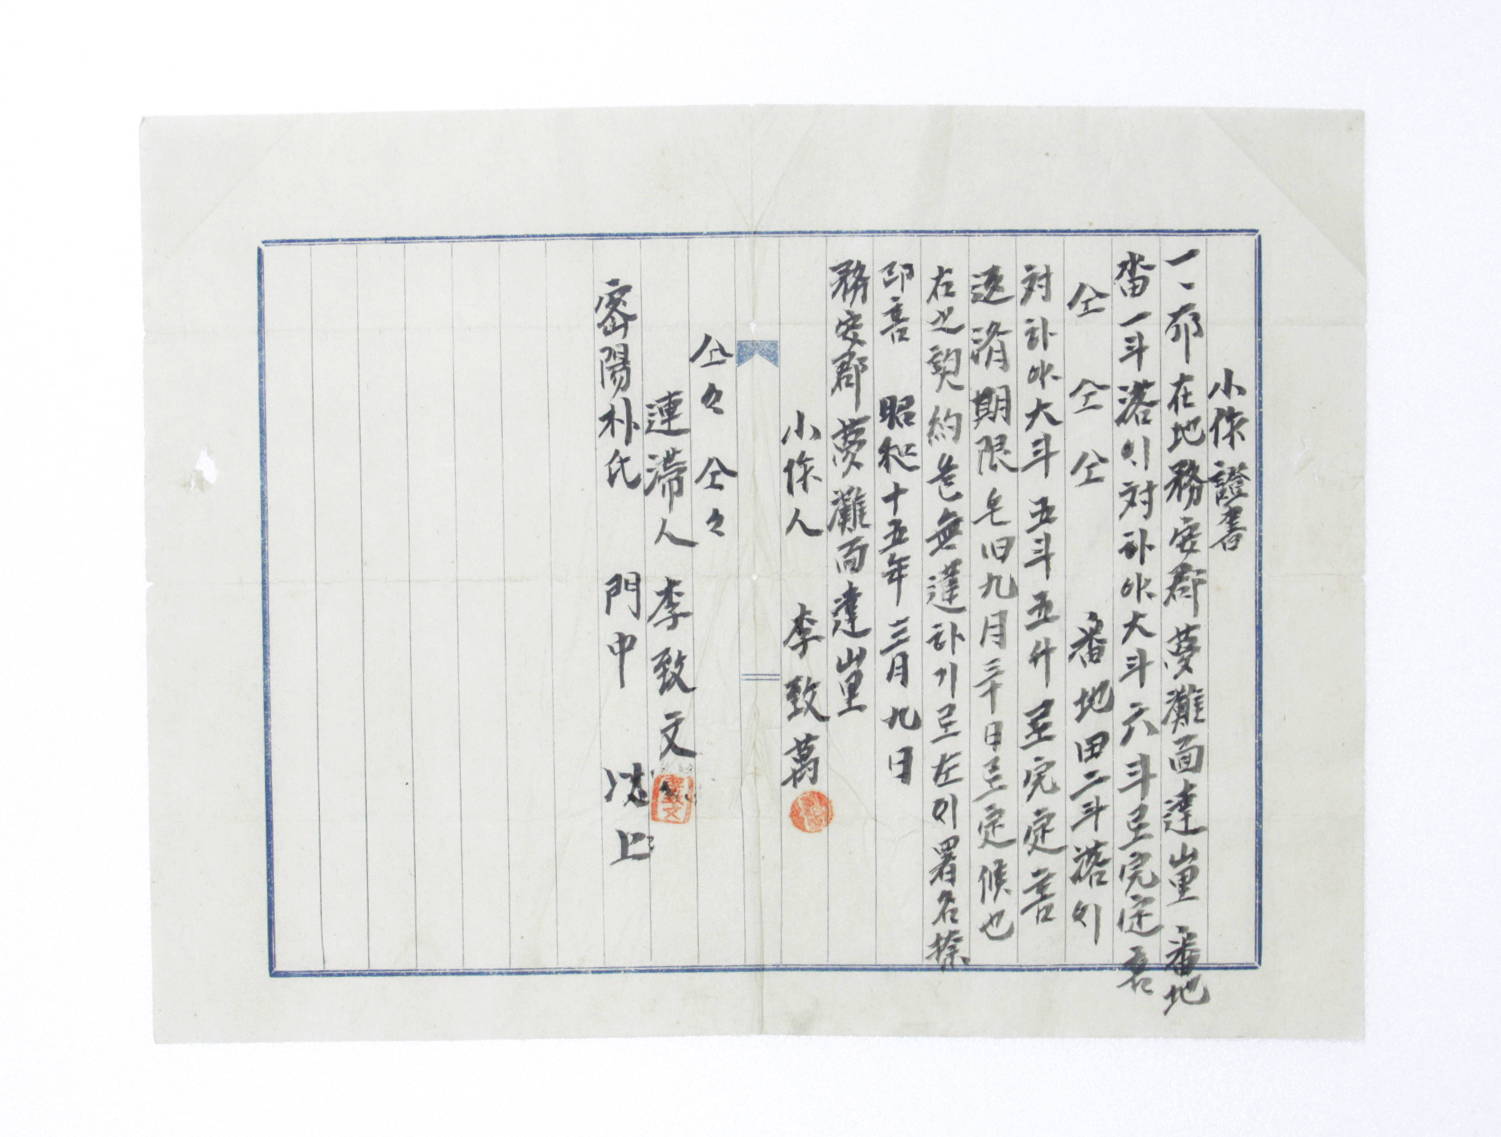 小作證書
一、所在地務安郡夢灘面達山里 番地
畓一斗落이対하야大斗六斗로完定喜
仝 仝 仝 番地田二斗落이
対하야大斗五斗五升로完定喜
返済期限은旧九月三十日로定候也
右之契約은無違하기로左이署名捺
印喜 昭和十五年三月九日
務安郡夢灘面達山里
小作人 李致萬
仝々 仝々
連滞人 李致文
密陽朴氏 門中 法上